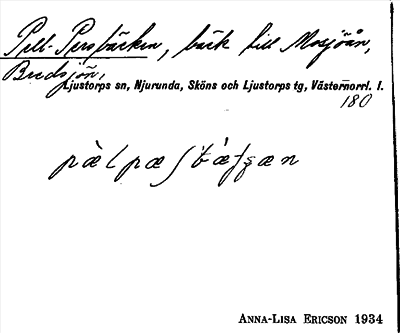 Pell-Persbäcken, bäck till Mosjöån,
Bredsjön,
Ljustorps sn, Njurunda, Sköns och Ljustorps tg, Västernorrl. l.
180
ANNA-LISA ERICSON 1934